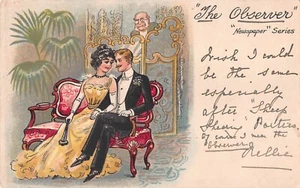 "The Observer"
"Newspaper" Series
Wish I could
be the same
especially
after "Sheep
Shearing" Parties,
of course I mean the
observer
Nellie